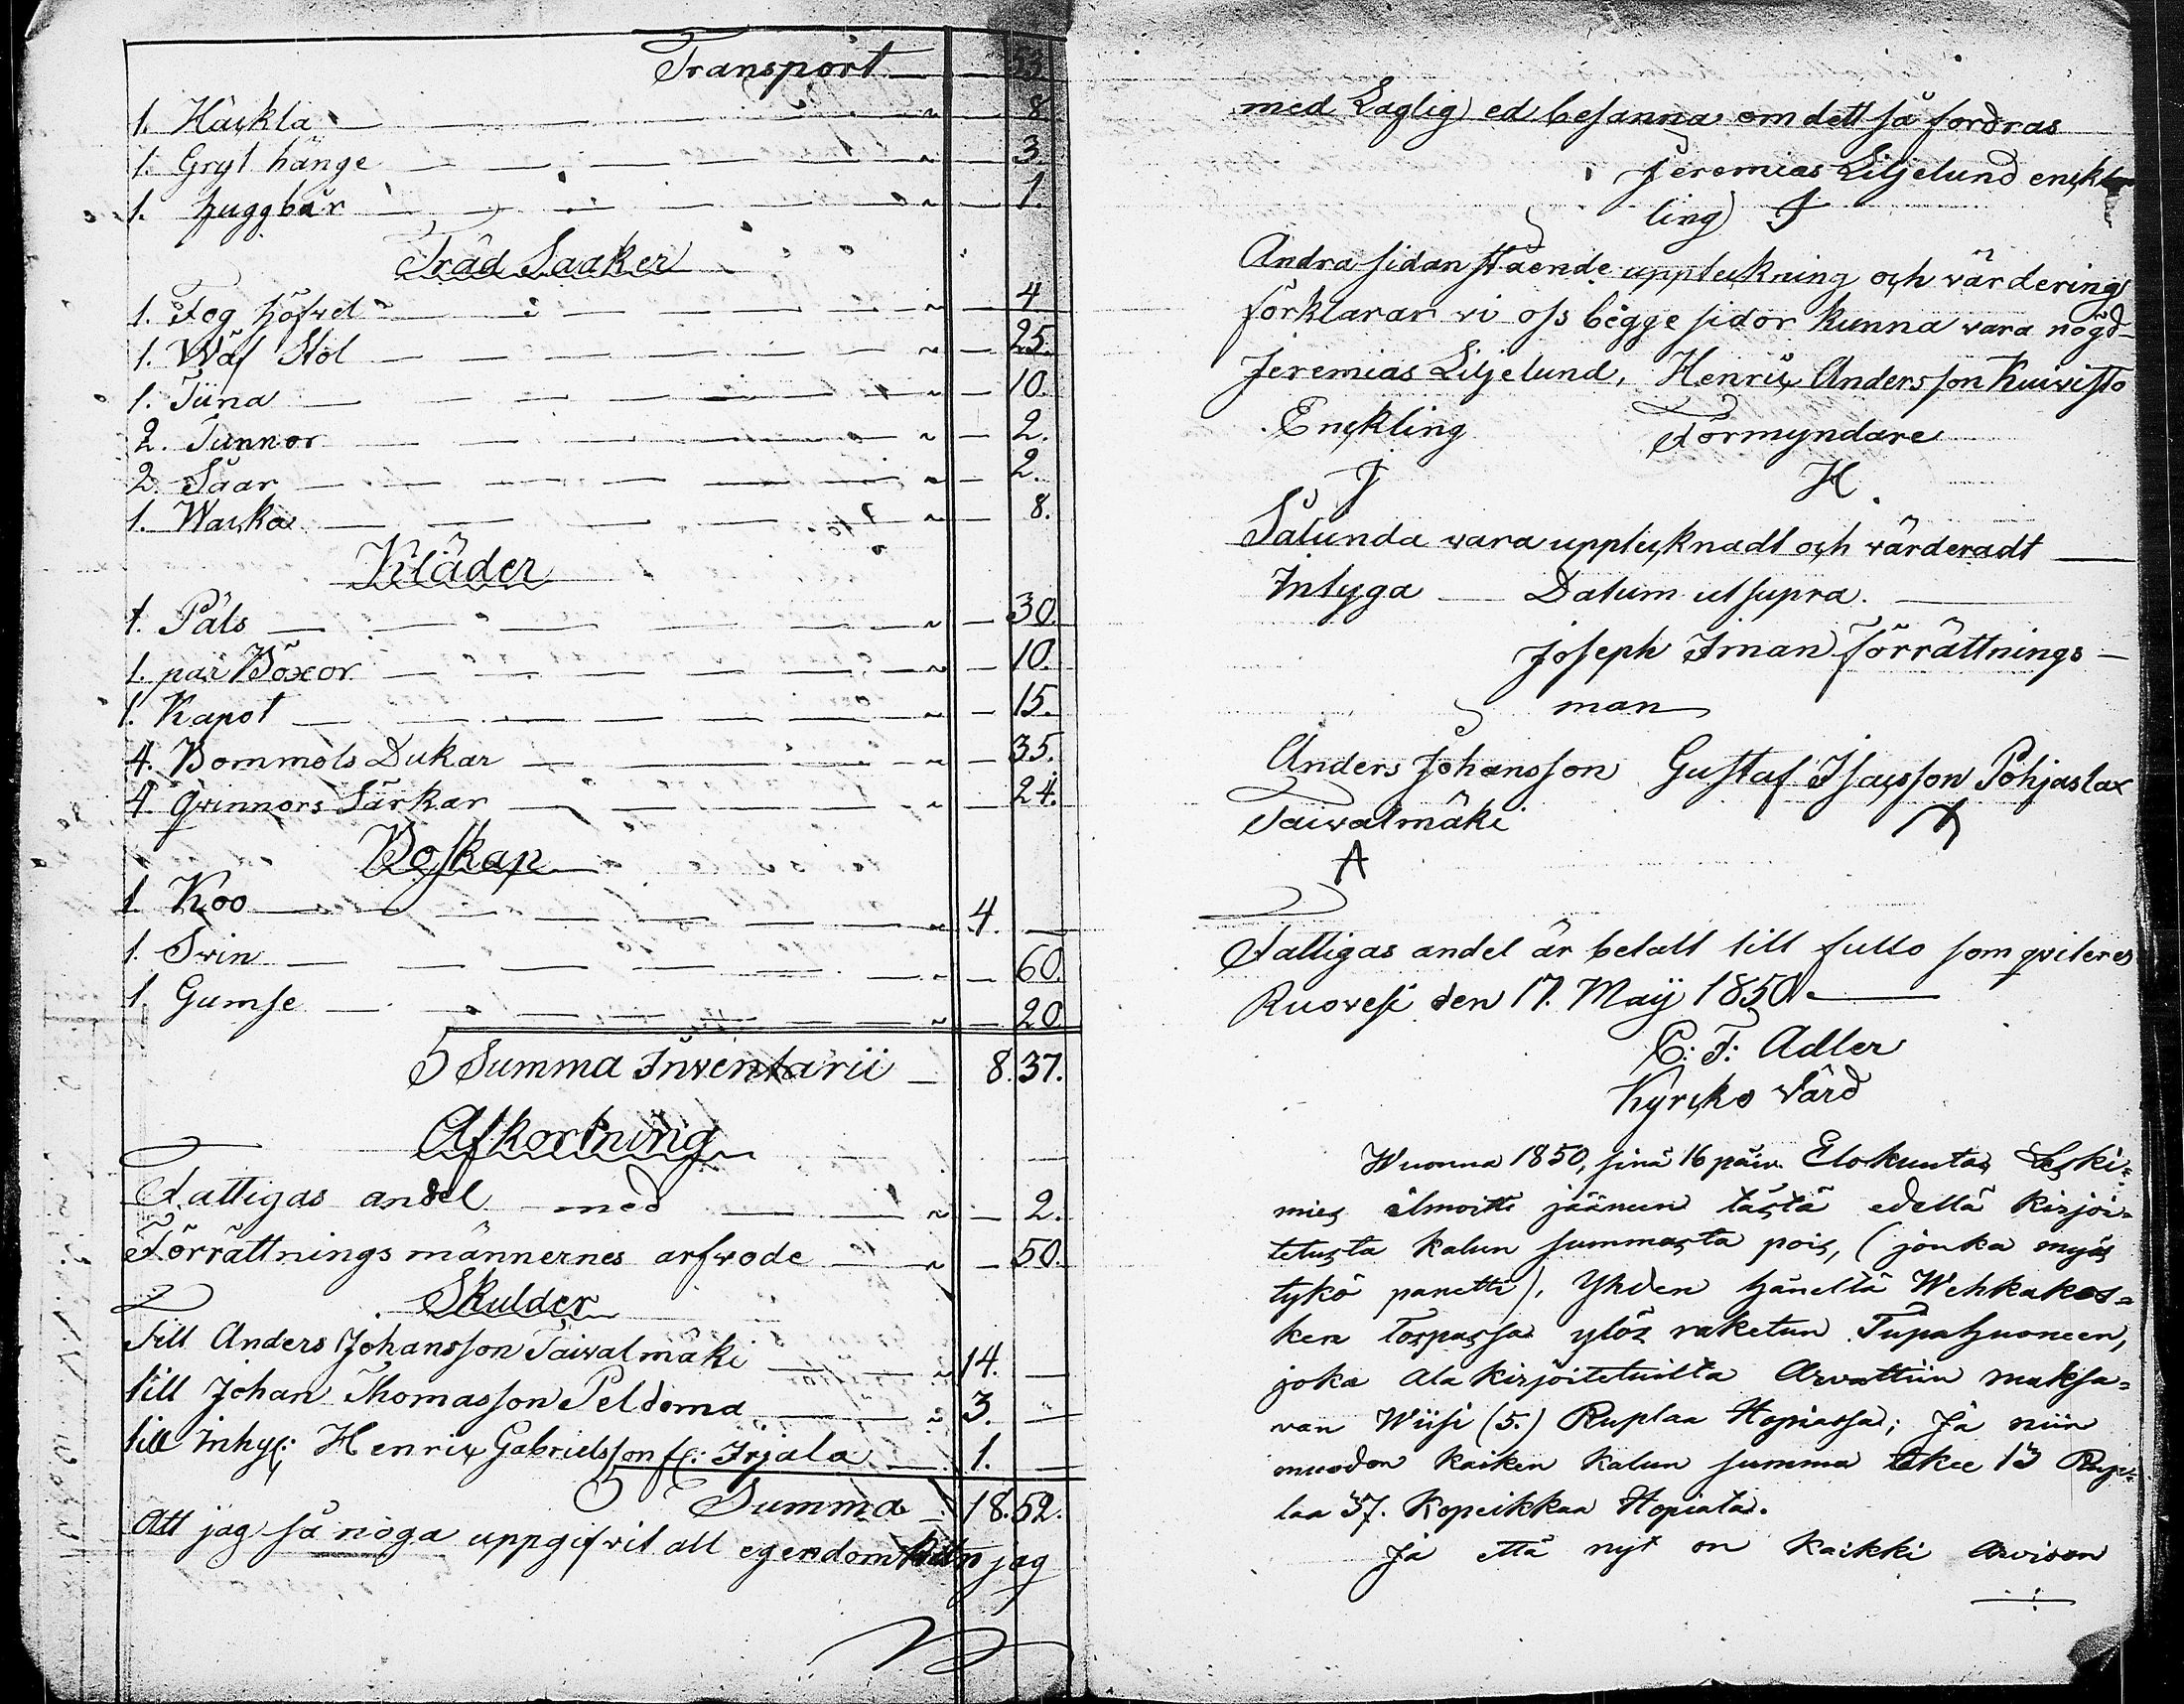 Transport 53.
1. Häckla 8
1. Gryt hänge 3.
1. huggbår 1.
Träd Saaker
1. Fog höfvel 4
1. Wäf Stol 25.
1. Tiina 10.
2. Tunnor 2.
2. Såar 2.
1. Wacka 8.
Kläder
1. Päls 30.
1. par Böxor 10.
1. Kapot 15.
4. Bommols Dukar 35.
4. qvinnors Särkar 24.
Boskap
1. Koo 4.
1. Svin 60.
1. Gumse 20.
Summa Inventarii 8.37.
Afkortning
Fattigas andel med 2.
Förrättnings männernes arfvode 50.
Skulder
Till Anders Johansson Taivalmäki 14.
till Johan Thomasson Peldoma 3.
till Inhys: Henric Gabrielsson fr: Irjala 1.
Summa 18.52.
Att jag så noga uppgifvit all egendom jag
med Laglig ed besanna om dett så fordras
Jeremias Liljelund enck
ling J
Andra sidan stående uppteckning och värderings
förklarar vi oss bägge sidor kunna vara nögd
Jeremias Liljelund, Henric Andersson Kuivisto
Enckling Förmyndare
J H.
Sålunda vara upptecknadt och värderadt
Intyga Datum ut supra.
Joseph Iman förrättnings-
man
Anders Johansson Gustaf Isacsson Pohjaslax
Taivalmäki
A
Fattigas andel är betalt till fullo som qviteres
Ruovesi den 17. Maij 1850.
C: F: Adler
Kyrcko Värd
Wuonna 1850, sinä 16 päiv. Elokuuta Leski=
mies ilmoitti jäänen tästä edellä kirjoi=
tetusta kalun summasta pois, (jonka myös
tykö panetti), Yhden häneltä Wehkakos=
ken Torpassa ylös raketun Tupahuoneen,
joka ala kirjoitetuilta Arvattiin maksa=
van Wiisi (5.) Ruplaa Hopiassa; Ja niin
muodon kaiken kalun summa tekee 13 Rup=
laa 37. Kopeikkaa Hopiata.
Ja että nyt on kaikki Arvioon